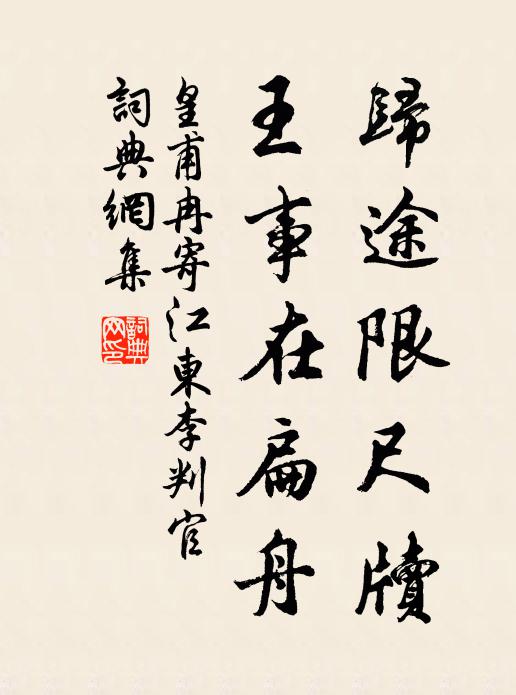 歸途限尺牘
王事在扁舟
皇甫冉寄江東李判官
詞典網集
詞典
网印